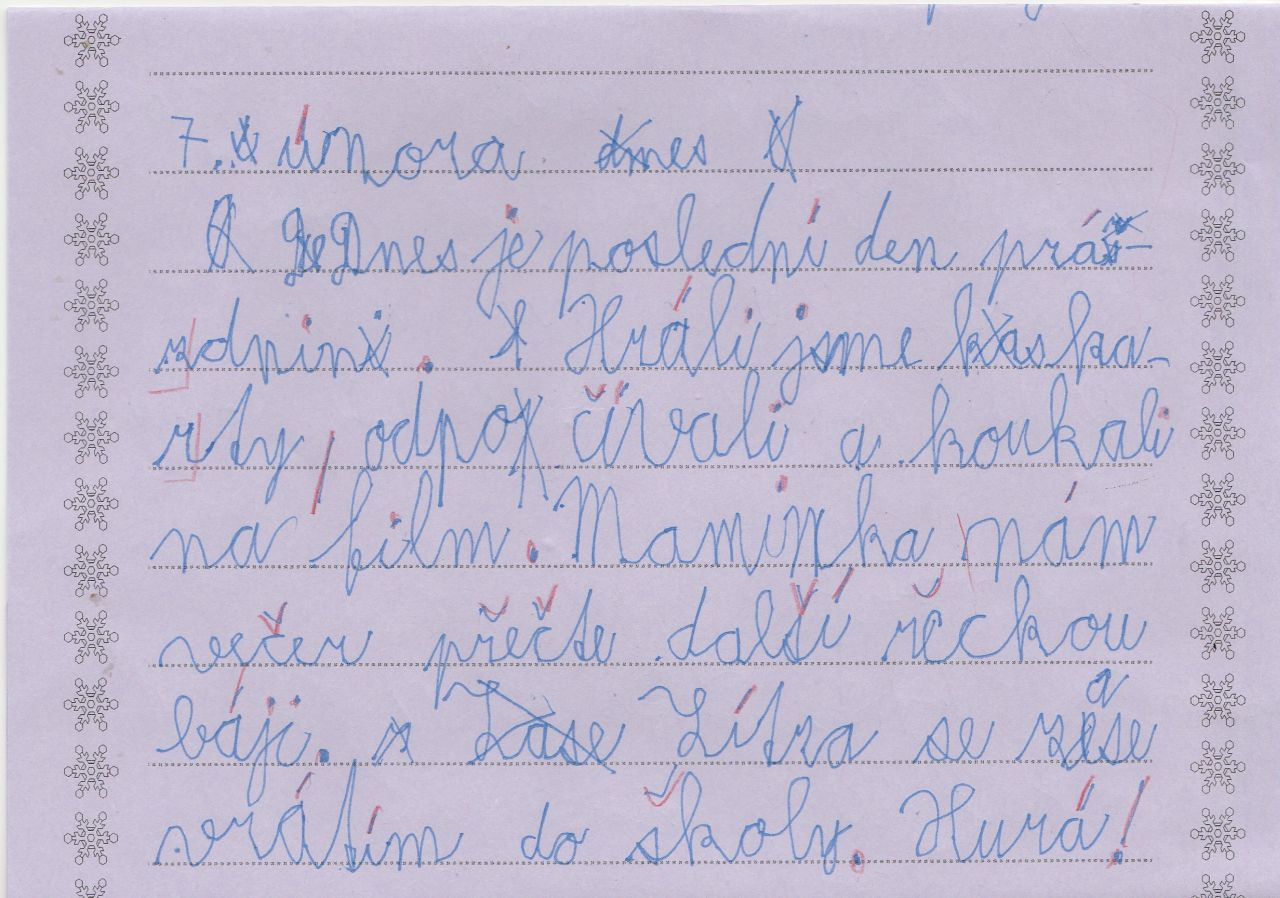 7. února
Dnes je poslední den prá-
zdnin. Hráli jsme ka-
rty, odpočívali a koukali
na film. Maminka nám
večer přečte další řeckou
báji. Zítra se zase
vrátím do školy. Hurá!